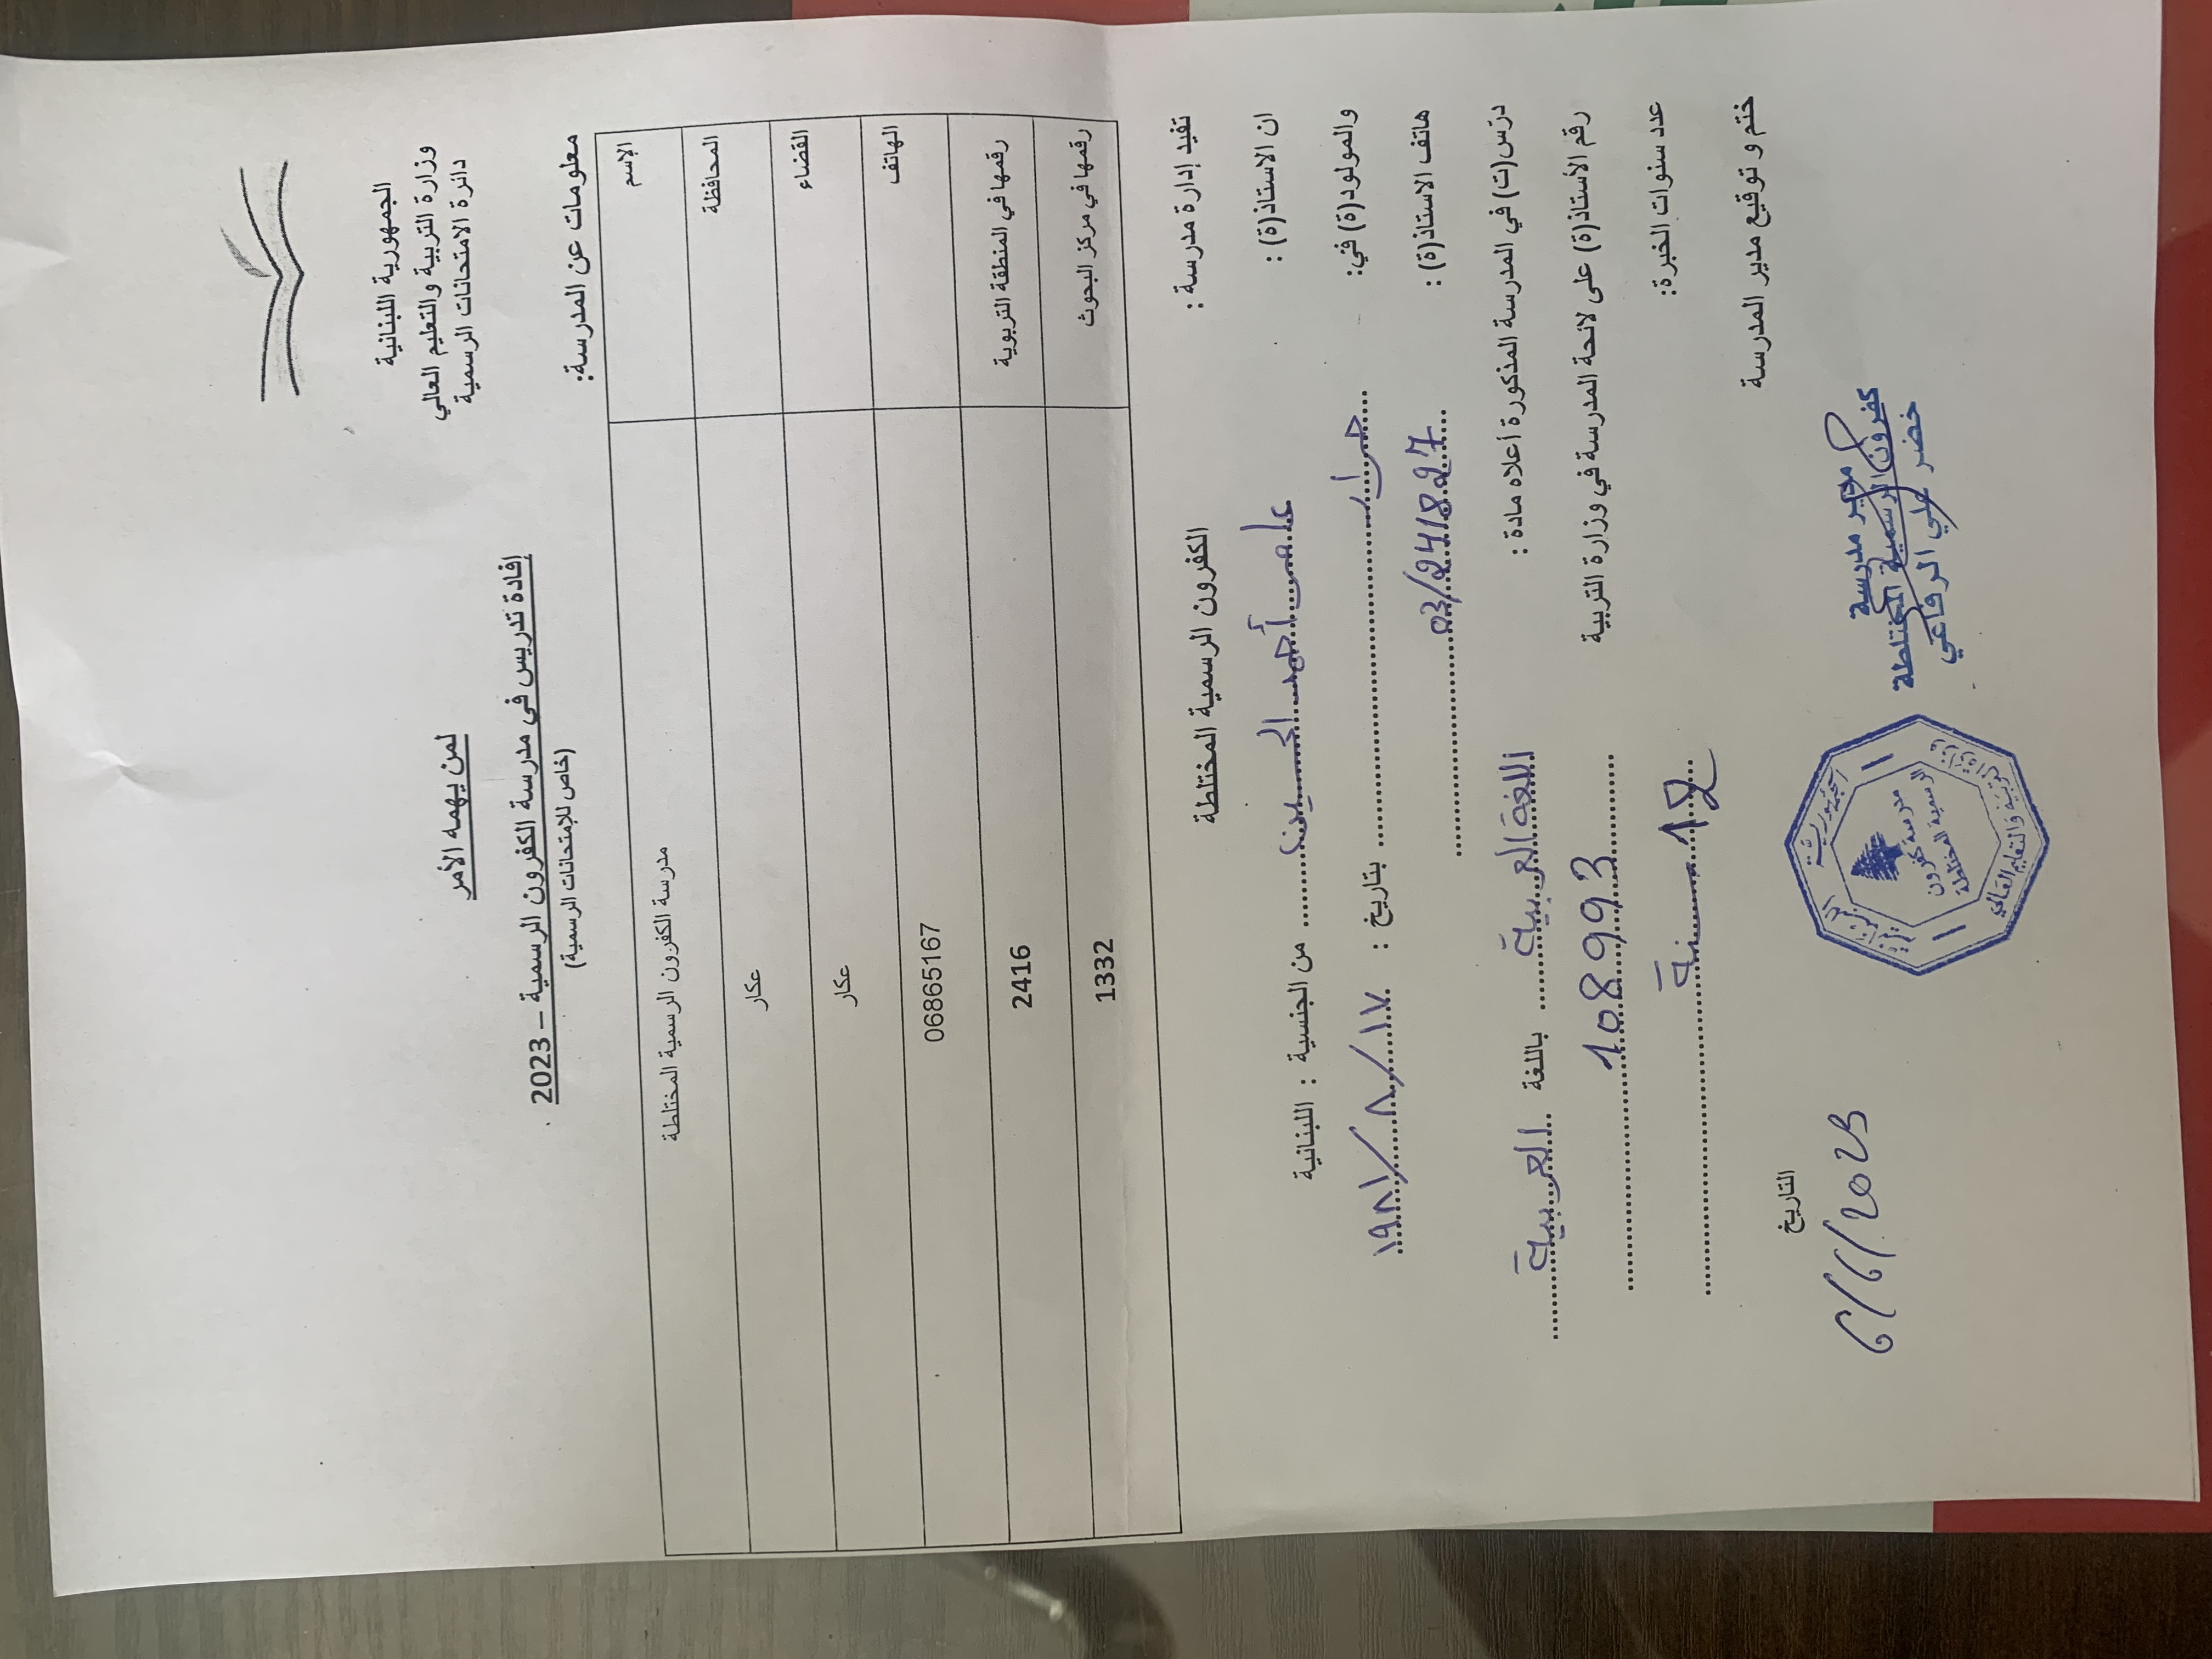 الجمهورية اللبنانية
وزارة التربية والتعليم العالي
دائرة الامتحانات الرسمية
لمن يهمه الأمر
إفادة تدريس في مدرسة الكفرون الرسمية – 2023
(خاص للإمتحانات الرسمية)
معلومات عن المدرسة:
الإسم مدرسة الكفرون الرسمية المختلطة
المحافظة عكار
القضاء عكار
الهاتف 06865167
رقمها في المنطقة التربوية 2416
رقمها في مركز البحوث 1332
تفيد إدارة مدرسة : الكفرون الرسمية المختلطة
ان الاستاذ(ة) : عامر أحمد الحسين من الجنسية : اللبنانية
والمولود(ة) في: حرار بتاريخ : ١٩٨١/٨/١٧
هاتف الاستاذ(ة) : 03/241827
درّس(ت) في المدرسة المذكورة أعلاه مادة : اللغة العربية باللغة العربية
رقم الأستاذ(ة) على لائحة المدرسة في وزارة التربية 108993
عدد سنوات الخبرة: 12 سنة
ختم و توقيع مدير المدرسة
التاريخ
6/6/2023
مدير مدرسة
كفرون الرسمية المختلطة
خضر علي الرفاعي
الجمهورية اللبنانية
وزارة التربية والتعليم العالي
مدرسة كفرون
الرسمية المختلطة